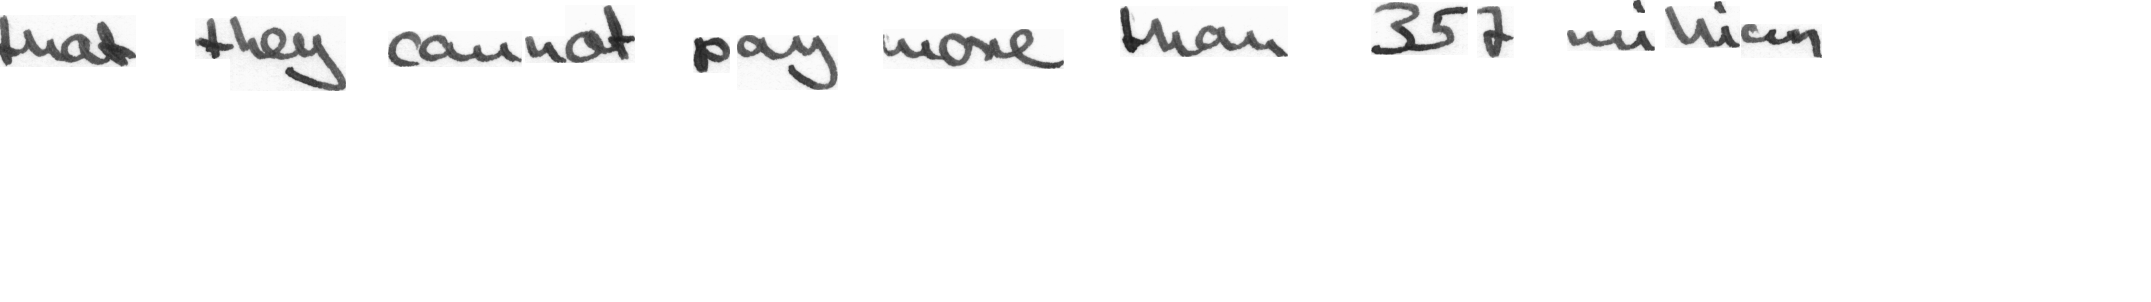 that they cannot pay more than 357 million